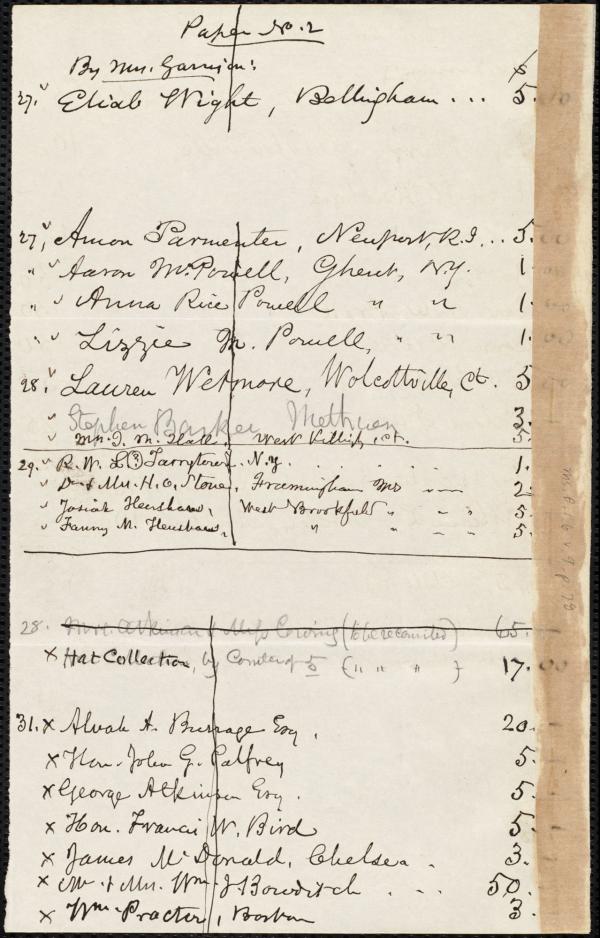 Paper No. 2
By Mrs. Garrison: $
27. ✓ Eliab Wight, Bellingham ... 5.
27, ✓ Amon Parmenter, Newport, R.I... 5.
" ✓ Aaron M. Powell, Ghent, N.Y. 1.
" ✓ Anna Rice Powell " " 1.
" ✓ Lizzie M. Powell, " " 1.
28. ✓ Lauren Wetmore, Wolcottville, Ct. 5
✓ Stephen Barker Methuen 3.
✓ Mrs. J. M. Hall, West Killingly, Ct. 5.
29. ✓ R. W. L (?) Tarrytown N.Y. . . . . 1.
✓ Dr & Mrs. H. O. Stone, Framingham Ms " " 2.
✓ Josiah Henshaw, West Brookfield " " " 5.
✓ Fanny M. Henshaw, " " " 5.
28. Atkinson & Miss Cowing (to be recounted) 65.
x Hat Collection, by Com'tee of 5 (" " " ) 17.
31. x Alvah A. Burrage Esq. 20.
x Hon. John G. Palfrey 5.
x George Atkinson Esq. 5.
x Hon. Francis W. Bird 5.
x James McDonald, Chelsea . 3.
x Mr. & Mrs. Wm. J Bowditch . . . 50.
x Wm. Procter, Boston 3.
Ms. A. 6 v. 9. p 79